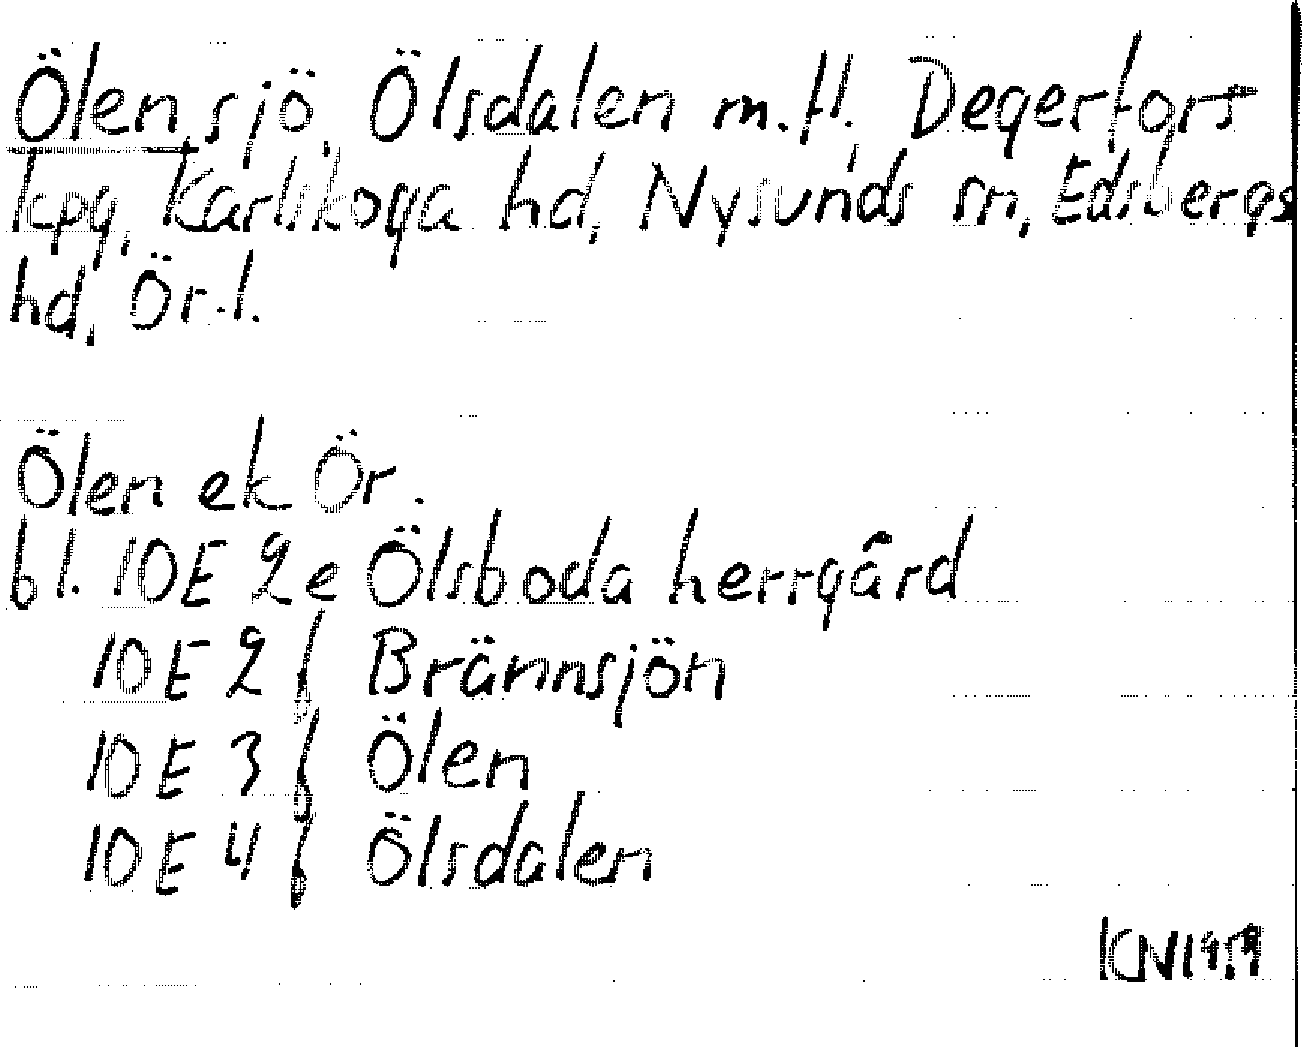 Ölen, sjö, Ölsdalen m.fl., Degerfors
kpg, Karlskoga hd, Nysunds sn, Edsbergs
hd, Ör.l.
Ölen ek Ör.
bl. 10E 2e Ölsboda herrgård
10E 2f Brännsjön
10E 3f Ölen
10E 4f Ölsdalen